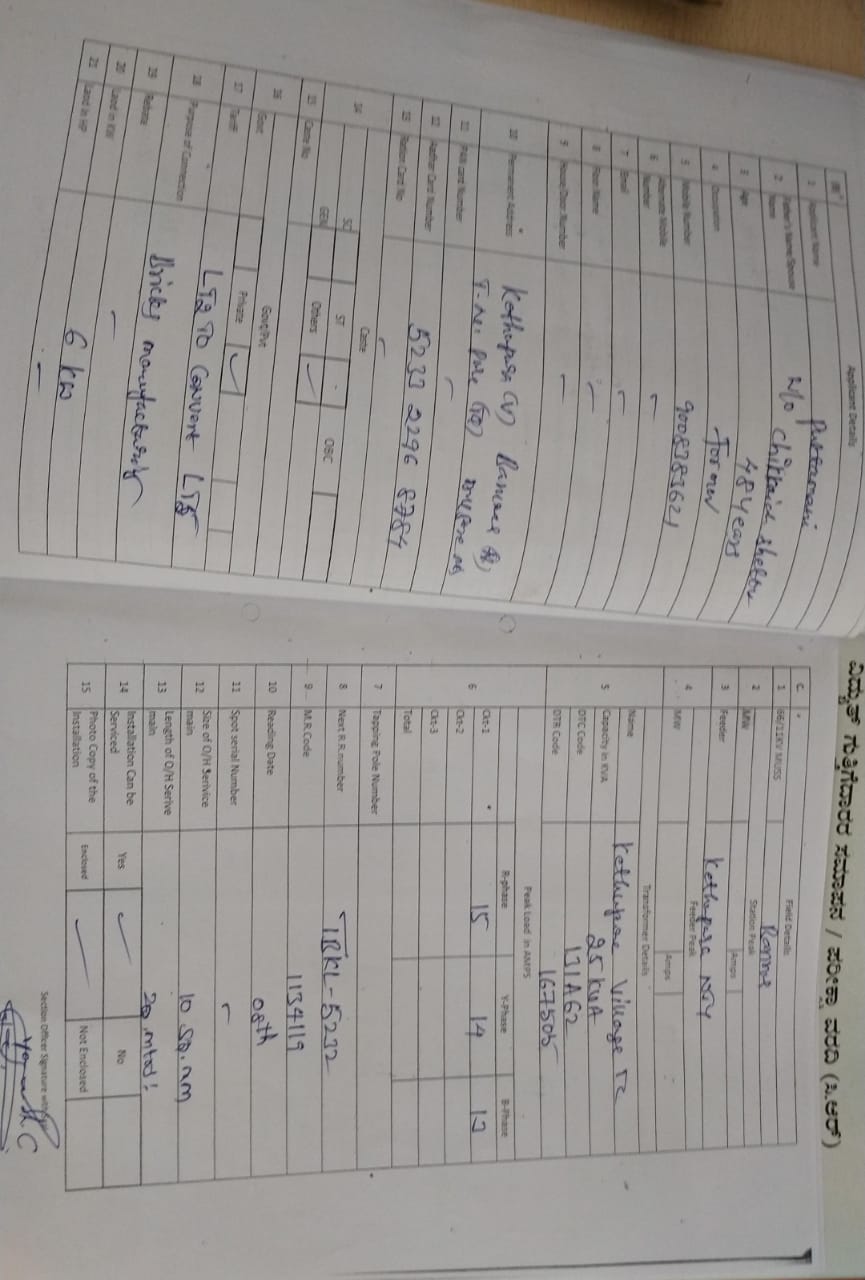 Applicant Details
1 Applicant Name Puttamani
2 Father's Name/Spouse Name W/o Chikkaiah shetty
3 Age 48 years
4 Occupation Farmer
5 Mobile Number 9008783621
6 Alternate Mobile Number -
7 Email -
8 Floor Name -
9 House/Door Number -
10 Permanent Address Kethupura (V)
11 PAN card Number -
12 Aadhar Card Number 5233 2296 8784
13 Ration Card No -
14 Caste
SC ST OBC
GEN Others ✓
15 Caste No
16 Govt Govt/Pvt
Private ✓
17 Tariff LT2 TO Convert LT5
18 Purpose of Connection Bricks manufacturing
19 Rebate -
20 Load in KW 6 KW
21 Load in HP -
ವಿದ್ಯುತ್ ಗುತ್ತಿಗೆದಾರರ ಸಮಾಪನ / ಪರೀಕ್ಷಾ ವರದಿ (ಸಿ.ಆರ್)
C. Field Details
1 66/11KV MUSS
2 Station Peak
MW Amps
3 Feeder Kethupura NJY
4 Feeder Peak
MW Amps
5 Transformer Details
Name Kethupura Village TC
Capacity in KVA 25 KVA
DTC Code 131A62
DTR Code 167505
6 Peak Load in AMPS
R-phase Y-Phase B-Phase
Ckt-1 15 14 12
Ckt-2
Ckt-3
Total
7 Tapping Pole Number
8 Next R.R.number TRKL-5232
9 M.R.Code 1134119
10 Reading Date 08th
11 Spot serial Number -
12 Size of O/H Serivice main 10 sq.mm
13 Length of O/H Serive main 20 mtrs
14 Installation Can be Serviced Yes ✓ No
15 Photo Copy of the Installation Enclosed ✓ Not Enclosed
Section Officer Signature with